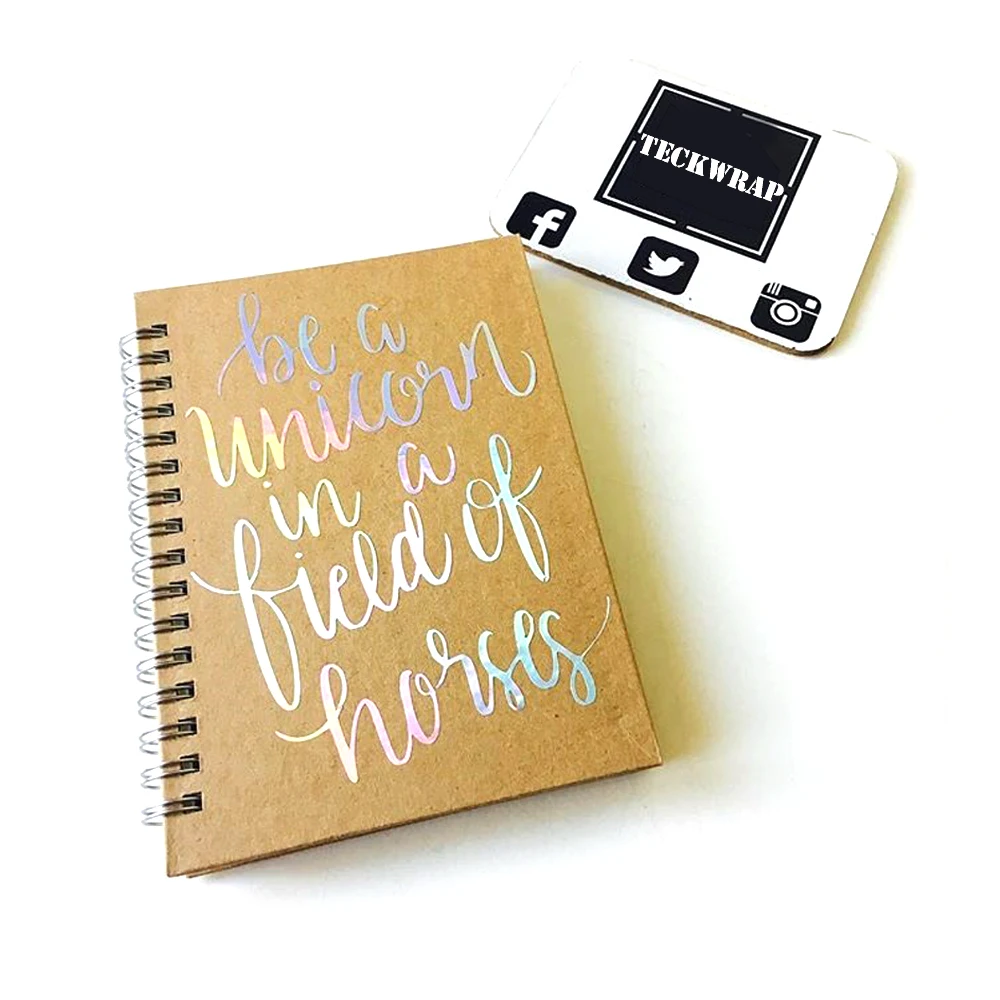 be a
unicorn
in a
field of
horses
TECKWRAP